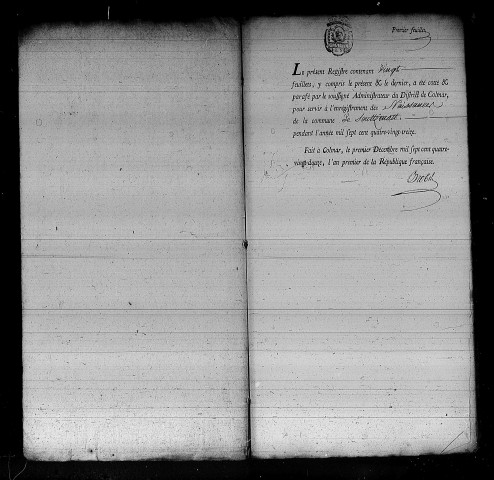 Premier feuillet
Le présent Registre contenant Vingt
feuillets, y compris le présent & le dernier, a été coté &
parafé par le soussigné Administrateur du District de Colmar,
pour servir à l'enregistrement des Naissances
de la commune de Soultzmatt
pendant l'année mil sept cent quatre-vingt-treize.
Fait à Colmar, le premier Décembre mil sept cent quatre-
vingt-douze, l'an premier de la République française.